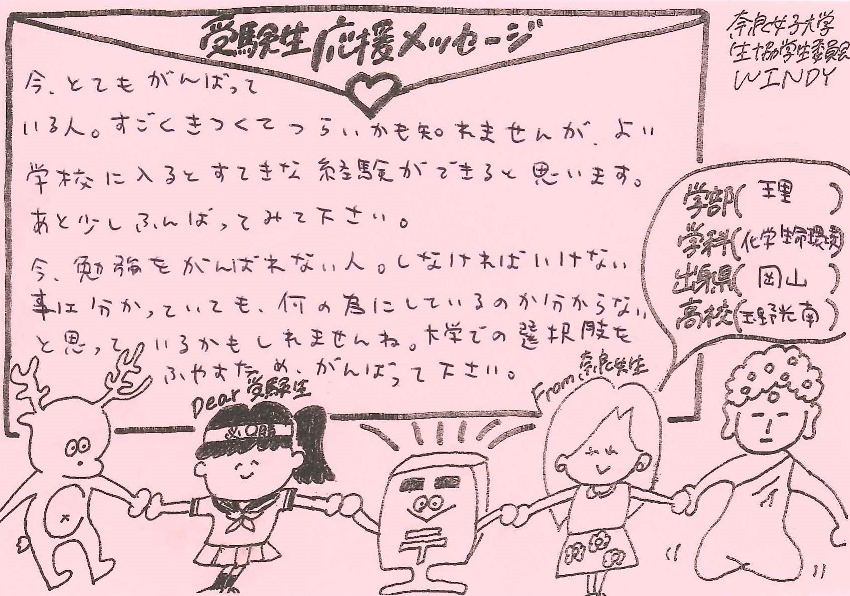 受験生応援メッセージ
奈良女子大学
生協学生委員会
WINDY
今、とてもがんばって
いる人。すごくきつくてつらいかも知れませんが、よい
学校に入るとすてきな経験ができると思います。
あと少しふんばってみて下さい。
今、勉強をがんばれない人。しなければいけない
事は分かっていても、何の為にしているのか分からない
と思っているかもしれませんね。大学での選択肢を
ふやすため、がんばって下さい。
学部(理)
学科(化学生命環境)
出身県(岡山)
高校(玉野光南)
Dear 受験生
From 奈良女生
必勝
〒